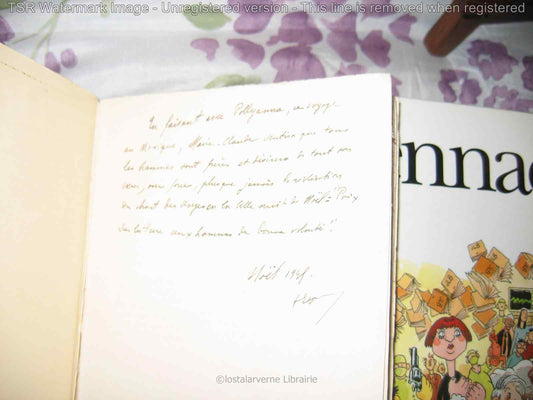 TSR Watermark Image - Unregistered version - This line is removed when registered
En faisant avec Pollyanna, ce voyage
au Mexique, Marie-Claude sentira que tous
les hommes sont frères et désirera de tout son
cœur, un jour, plus que jamais la réalisation
du chant des anges en la belle nuit de Noël "Paix
sur la terre aux hommes de bonne volonté"!
Noël 1945.
ennac
©lostalarverne Librairie